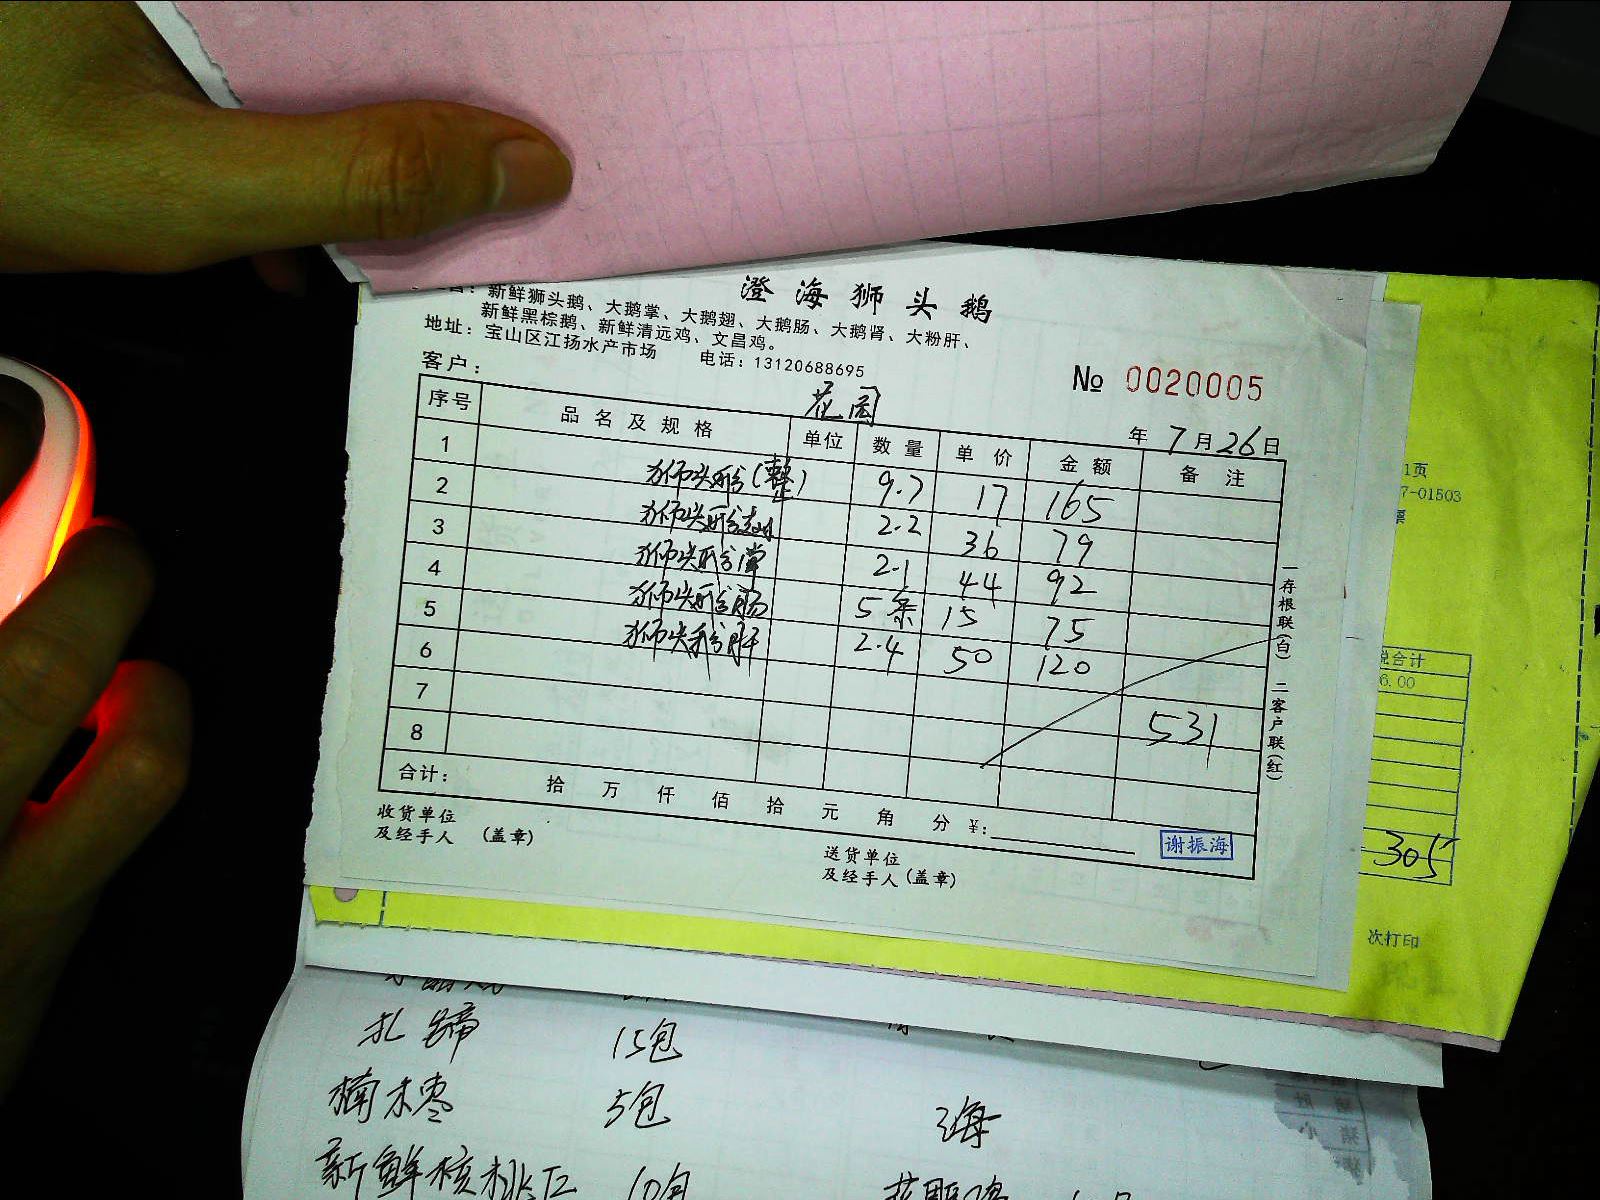 澄海狮头鹅
新鲜狮头鹅、大鹅掌、大鹅翅、大鹅肠、大鹅肾、大粉肝、
新鲜黑棕鹅、新鲜清远鸡、文昌鸡。
地址：宝山区江扬水产市场 电话：13120688695
№ 0020005
客户： 花园 年 7月26日
序号 品名及规格 单位 数量 单价 金额 备注
1 狮头鹅(整) 9.7 17 165
2 狮头鹅翅 2.2 36 79
3 狮头鹅掌 2.1 44 92
4 狮头鹅肠 5条 15 75
5 狮头鹅肝 2.4 50 120
6
7 531
8
合计： 拾 万 仟 佰 拾 元 角 分 ¥:
收货单位
及经手人 (盖章)
送货单位
及经手人(盖章)
谢振海
一存根联(白) 二客户联(红)
1页
7-01503
票
税合计
6.00
305
次打印
扎蹄 15包
楠木枣 5包
海
新鲜核桃仁 10包